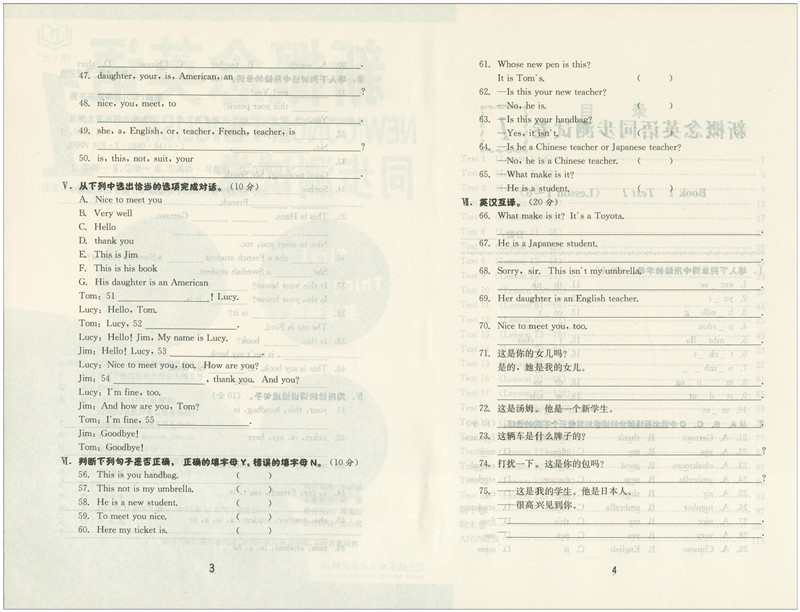 47. daughter, your, is, American, an
?
48. nice, you, meet, to
.
49. she, a, English, or, teacher, French, teacher, is
?
50. is, this, not, suit, your
.
Ⅴ. 从下列中选出恰当的选项完成对话。(10 分)
A. Nice to meet you
B. Very well
C. Hello
D. thank you
E. This is Jim
F. This is his book
G. His daughter is an American
Tom: 51 ____________! Lucy.
Lucy: Hello, Tom.
Tom: Lucy, 52 ____________.
Lucy: Hello! Jim, My name is Lucy.
Jim: Hello! Lucy, 53 ____________.
Lucy: Nice to meet you, too. How are you?
Jim: 54 ____________, thank you. And you?
Lucy: I'm fine, too.
Jim: And how are you, Tom?
Tom: I'm fine, 55 ____________.
Jim: Goodbye!
Tom: Goodbye!
Ⅵ. 判断下列句子是否正确, 正确的填字母 Y, 错误的填字母 N。(10 分)
56. This is you handbag. ( )
57. This not is my umbrella. ( )
58. He is a new student. ( )
59. To meet you nice. ( )
60. Here my ticket is. ( )
3
61. Whose new pen is this?
It is Tom's. ( )
62. —Is this your new teacher?
—No, he is. ( )
63. —Is this your handbag?
—Yes, it isn't. ( )
64. —Is he a Chinese teacher or Japanese teacher?
—No, he is a Chinese teacher. ( )
65. —What make is it?
—He is a student. ( )
Ⅶ. 英汉互译。(20 分)
66. What make is it? It's a Toyota.
.
67. He is a Japanese student.
.
68. Sorry, sir. This isn't my umbrella.
.
69. Her daughter is an English teacher.
.
70. Nice to meet you, too.
.
71. 这是你的女儿吗?
是的, 她是我的女儿。
.
72. 这是汤姆。他是一个新学生。
.
73. 这辆车是什么牌子的?
?
74. 打扰一下。这是你的包吗?
?
75. ——这是我的学生。他是日本人。
——很高兴见到你。
.
4